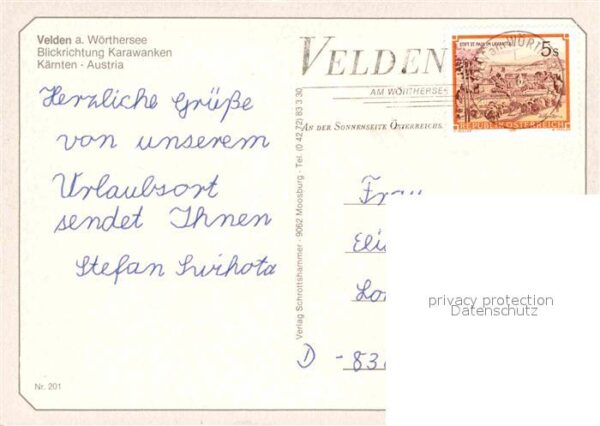 Velden a. Wörthersee
Blickrichtung Karawanken
Kärnten - Austria
Herzliche Grüße
von unserem
Urlaubsort
sendet Ihnen
Stefan
Nr. 201
Verlag Schrottshammer · 9062 Moosburg · Tel. (0 42 72) 83 3 30
VELDEN
AM WÖRTHERSEE
AN DER SONNENSEITE ÖSTERREICHS
STIFT ST. PAUL IM LAVANTTAL
5 S
REPUBLIK ÖSTERREICH
Frau
D - 83
privacy protection
Datenschutz